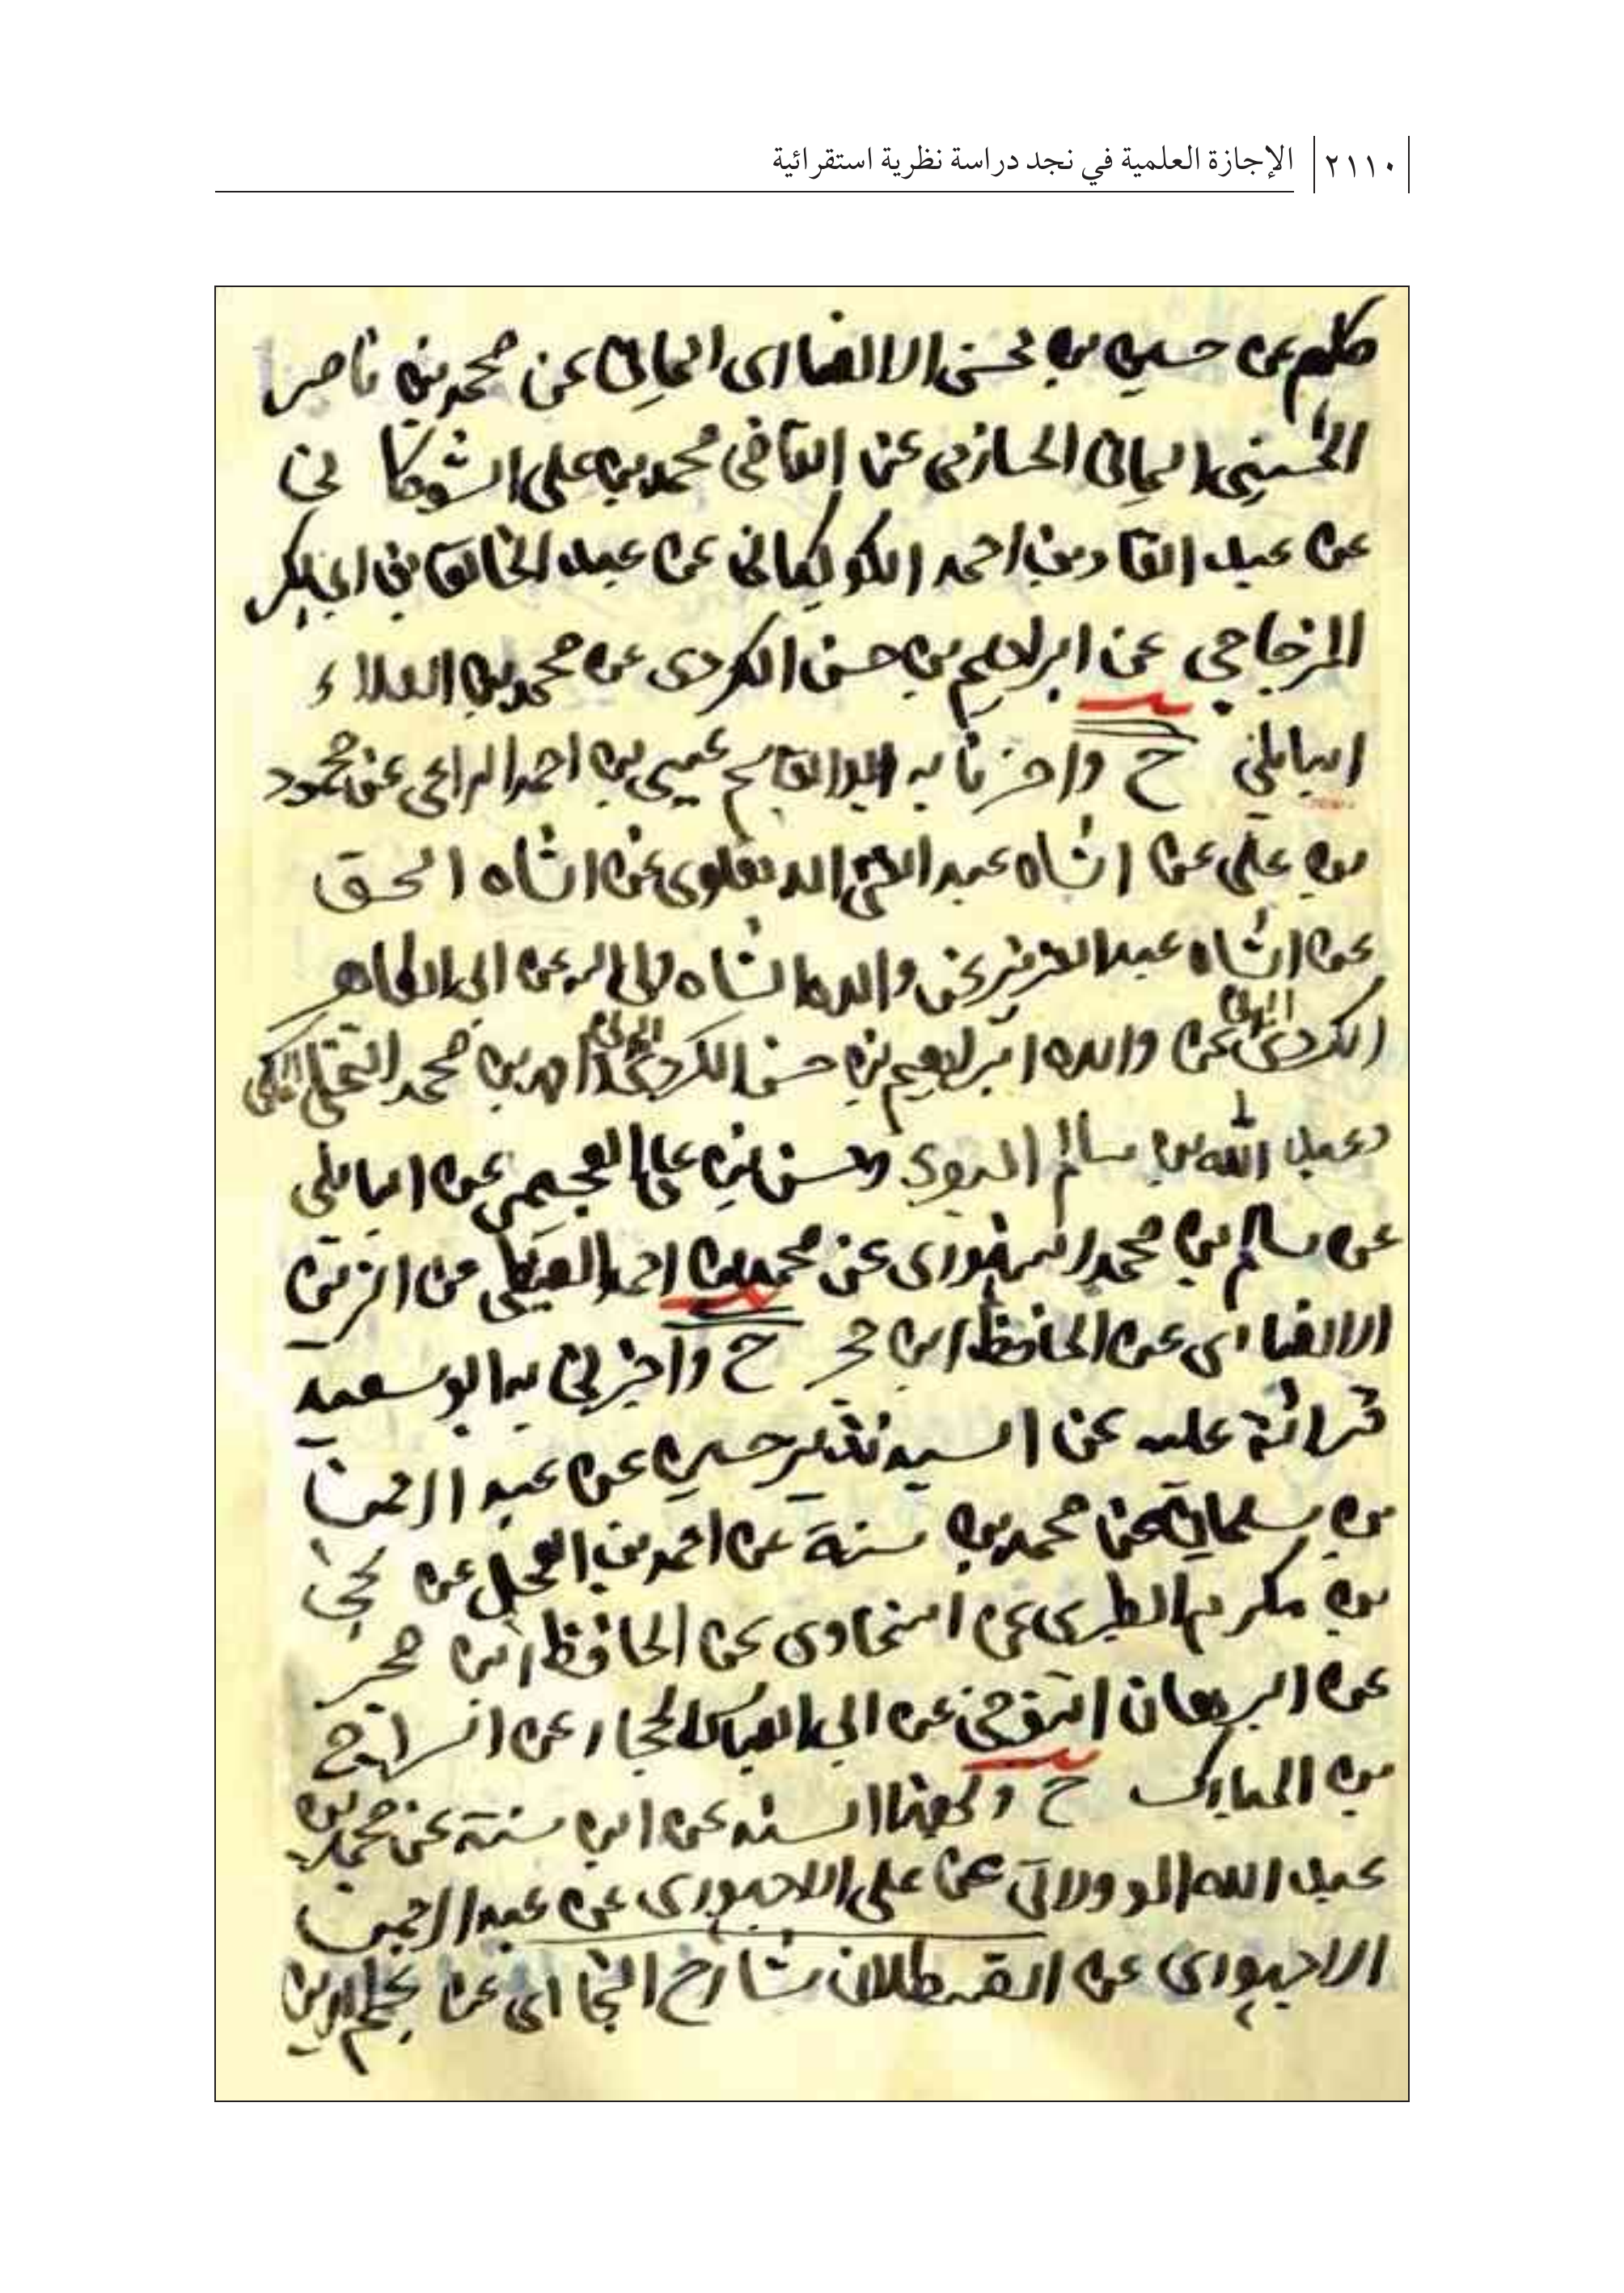 ٢١١٠ الإجازة العلمية في نجد دراسة نظرية استقرائية
كلهم عن حسين بن محسن الانصاري اليماني عن محمد بن ناصر
الحسيني اليماني الحازمي عن القاضي محمد بن علي الشوكا ني
عن عبد القادر بن احمد الكوكباني عن عبد الخالق بن ابي بكر
المزجاجي عن ابراهيم بن حسن الكردي عن محمد بن العلاء
البابلي ح واخبرنا به ابو القاسم عيسى بن احمد الراعي عن محمود
بن علي عن الشاه عبد الغني الدهلوي عن الشاه اسحق
عن الشاه عبد العزيز عن والده الشاه ولي الله عن ابي الطاهر
الكردي المدني عن والده ابراهيم بن حسن الكردي المدني واحمد بن محمد النخلي المكي
وعبد الله بن سالم البصري وحسن بن علي العجيمي عن البابلي
عن سالم بن محمد السنهوري عن محمد بن احمد الغيطي عن الزين
الانصاري عن الحافظ ابن حجر ح واخبرني به ابو سعيد
قرائة عليه عن السيد نذير حسين عن عبد الرحمن
بن سليمان عن محمد بن سنة عن احمد بن العجل عن يحيى
بن مكرم الطبري عن السخاوي عن الحافظ ابن حجر
عن البرهان التنوخي عن ابي العباس الحجار عن السراج
بن المبارك ح وبهذا السند عن ابن سنة عن محمد بن
عبد الله الوولاتي عن علي الاجهوري عن عبد الرحمن
الاجهوري عن القسطلان شارح البخاري عن نجم الدين